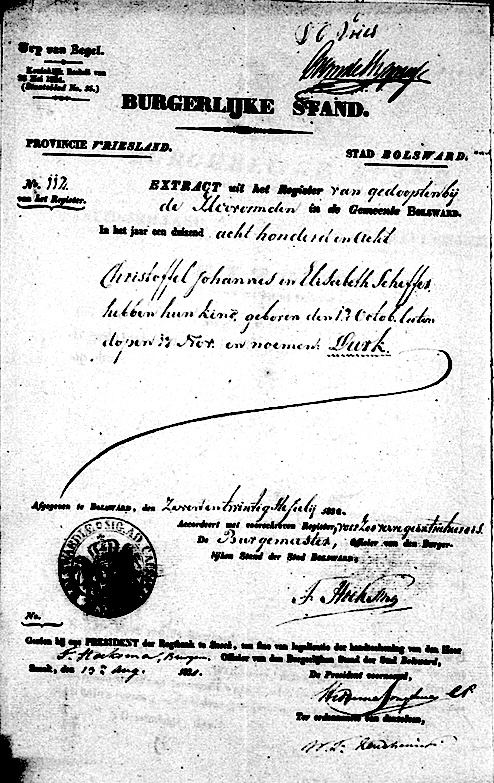 S. C. Vries
Vrij van Zegel.
Koninklijk Besluit van
26 Mei 1824.
(Staatsblad No. 35.)
BURGERLIJKE STAND.
PROVINCIE VRIESLAND.
STAD BOLSWARD.
No. 112.
van het Register.
EXTRACT uit het Register van gedoopten bij
de Hervormden in de Gemeente BOLSWARD.
In het jaar een duizend acht honderd en acht
Christoffel Johannes en Elisabeth Scheffer
hebben hun kind, geboren den 12 Octob. laten
dopen 13 Nov. en noemen: Durk.
Afgegeven te BOLSWARD, den Zevenentwintigste Julij
Accordeert met voorschreven Register,
De Burgemeester, Officier van den Burger-
lijken Stand der Stad BOLSWARD,
No.
Gezien bij ons PRESIDENT der Regtbank te Sneek, om fine van legalisatie der handteekening van den Heer
Officier van den Burgerlijken Stand der Stad Bolsward,
Sneek, den Aug.
De President voornoemd,
Ter ordonnantie van denzelven,